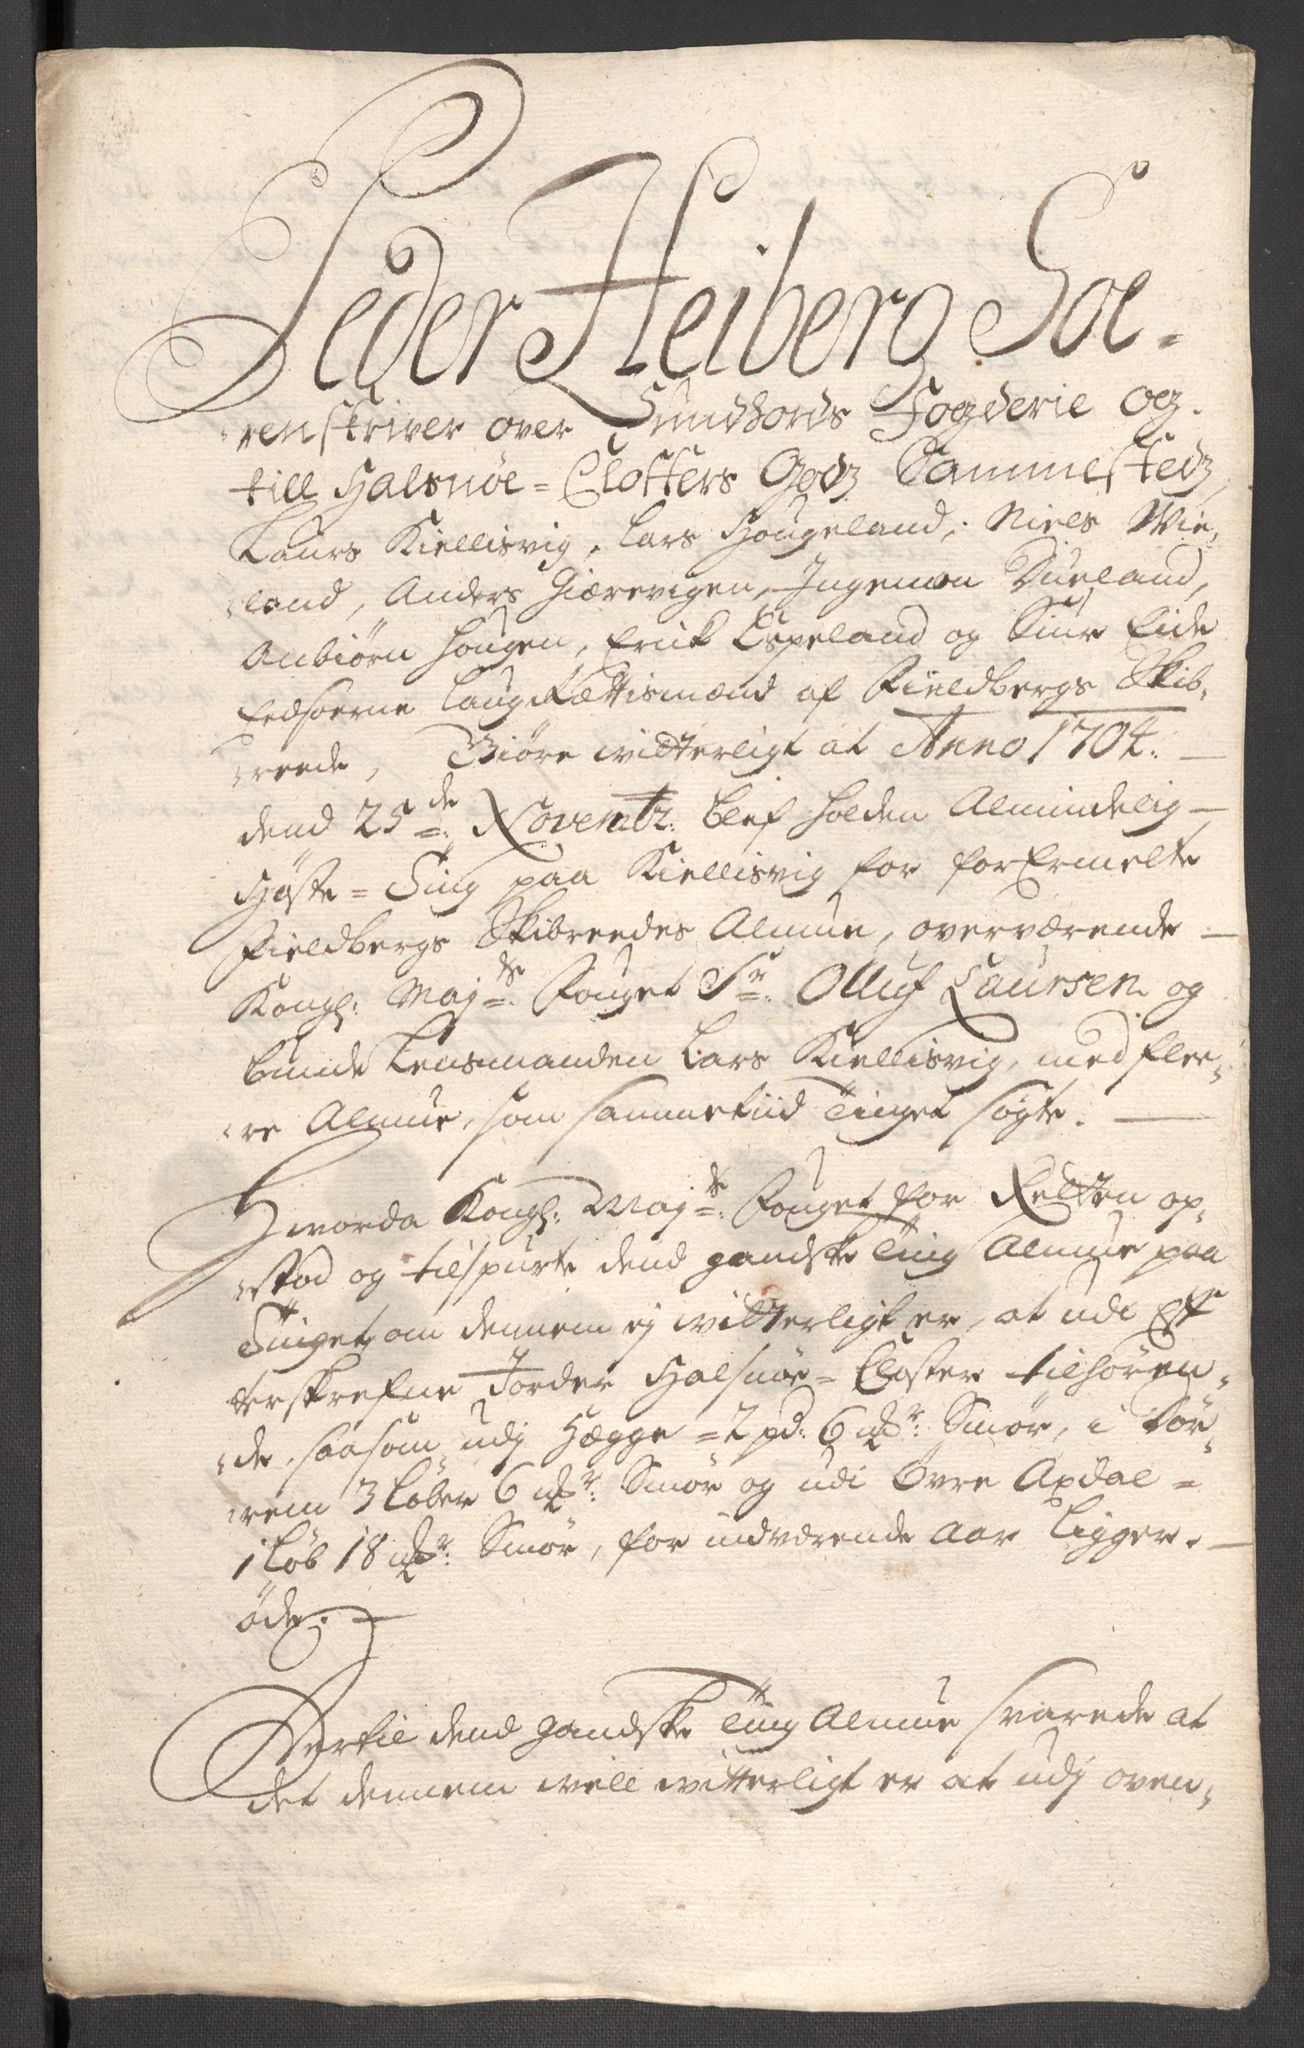 Peder Heiberg Soe-
renskriver over Sundhords Fogderie og
till Halsnøe-Closters Godz Sammestedz,
Laurs Kiellisvig, Lars Hougeland, Niels Wie,
land, Anders Giærevigen, Ingemon Dueland,
Anbiørn Hougen, Erick Espeland og Siur Eide
Eedsoerne LaugRættismænd af Fieldbergs Skib,
reede, Giøre witterligt at Anno 1704.
dend 25de Novembr: blef holden Almindelig
Høste-Ting paa Kiellisvig for forErmelte
Fieldbergs Skibreedes Almue, overværende
Kongl: Majts Fouget Sr. Olluf Laursen og
bunde Lensmanden Lars Kiellisvig, med flee-
re Almue, som sammetiid Tinget søgte.
Hvorda Kongl: Majts: Fouget for Retten op,
stod og tilspurte dend gandske Ting Almue paa
Tinget, om dennem ej witterligt er, at udi Eff
terskrefne Jorder Halsnøe-Closter tilhøren,
de, saasom udj Hægge = 2 pd: 6 mkr: Smør, i Dør
rem 3 Løber 6 mkr: Smør og udi Øvre Axdal =
1 Løb 18 mkr: Smør, for indværende Aar Ligger
øde.
Dertil dend gandske Ting Almue svarede at
det dennem well witterligt er at udj oven,